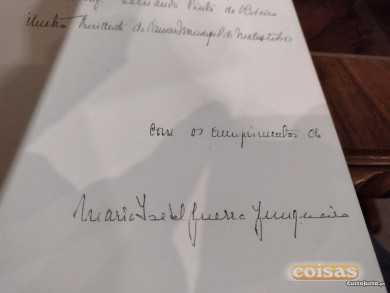 Fernando Pinto de Oliveira
Ilustre Presidente da Camara Municipal de Matosinhos
Com os cumprimentos de
Maria Isabel Guerra Junqueiro
coisas
CustoJusto.pt